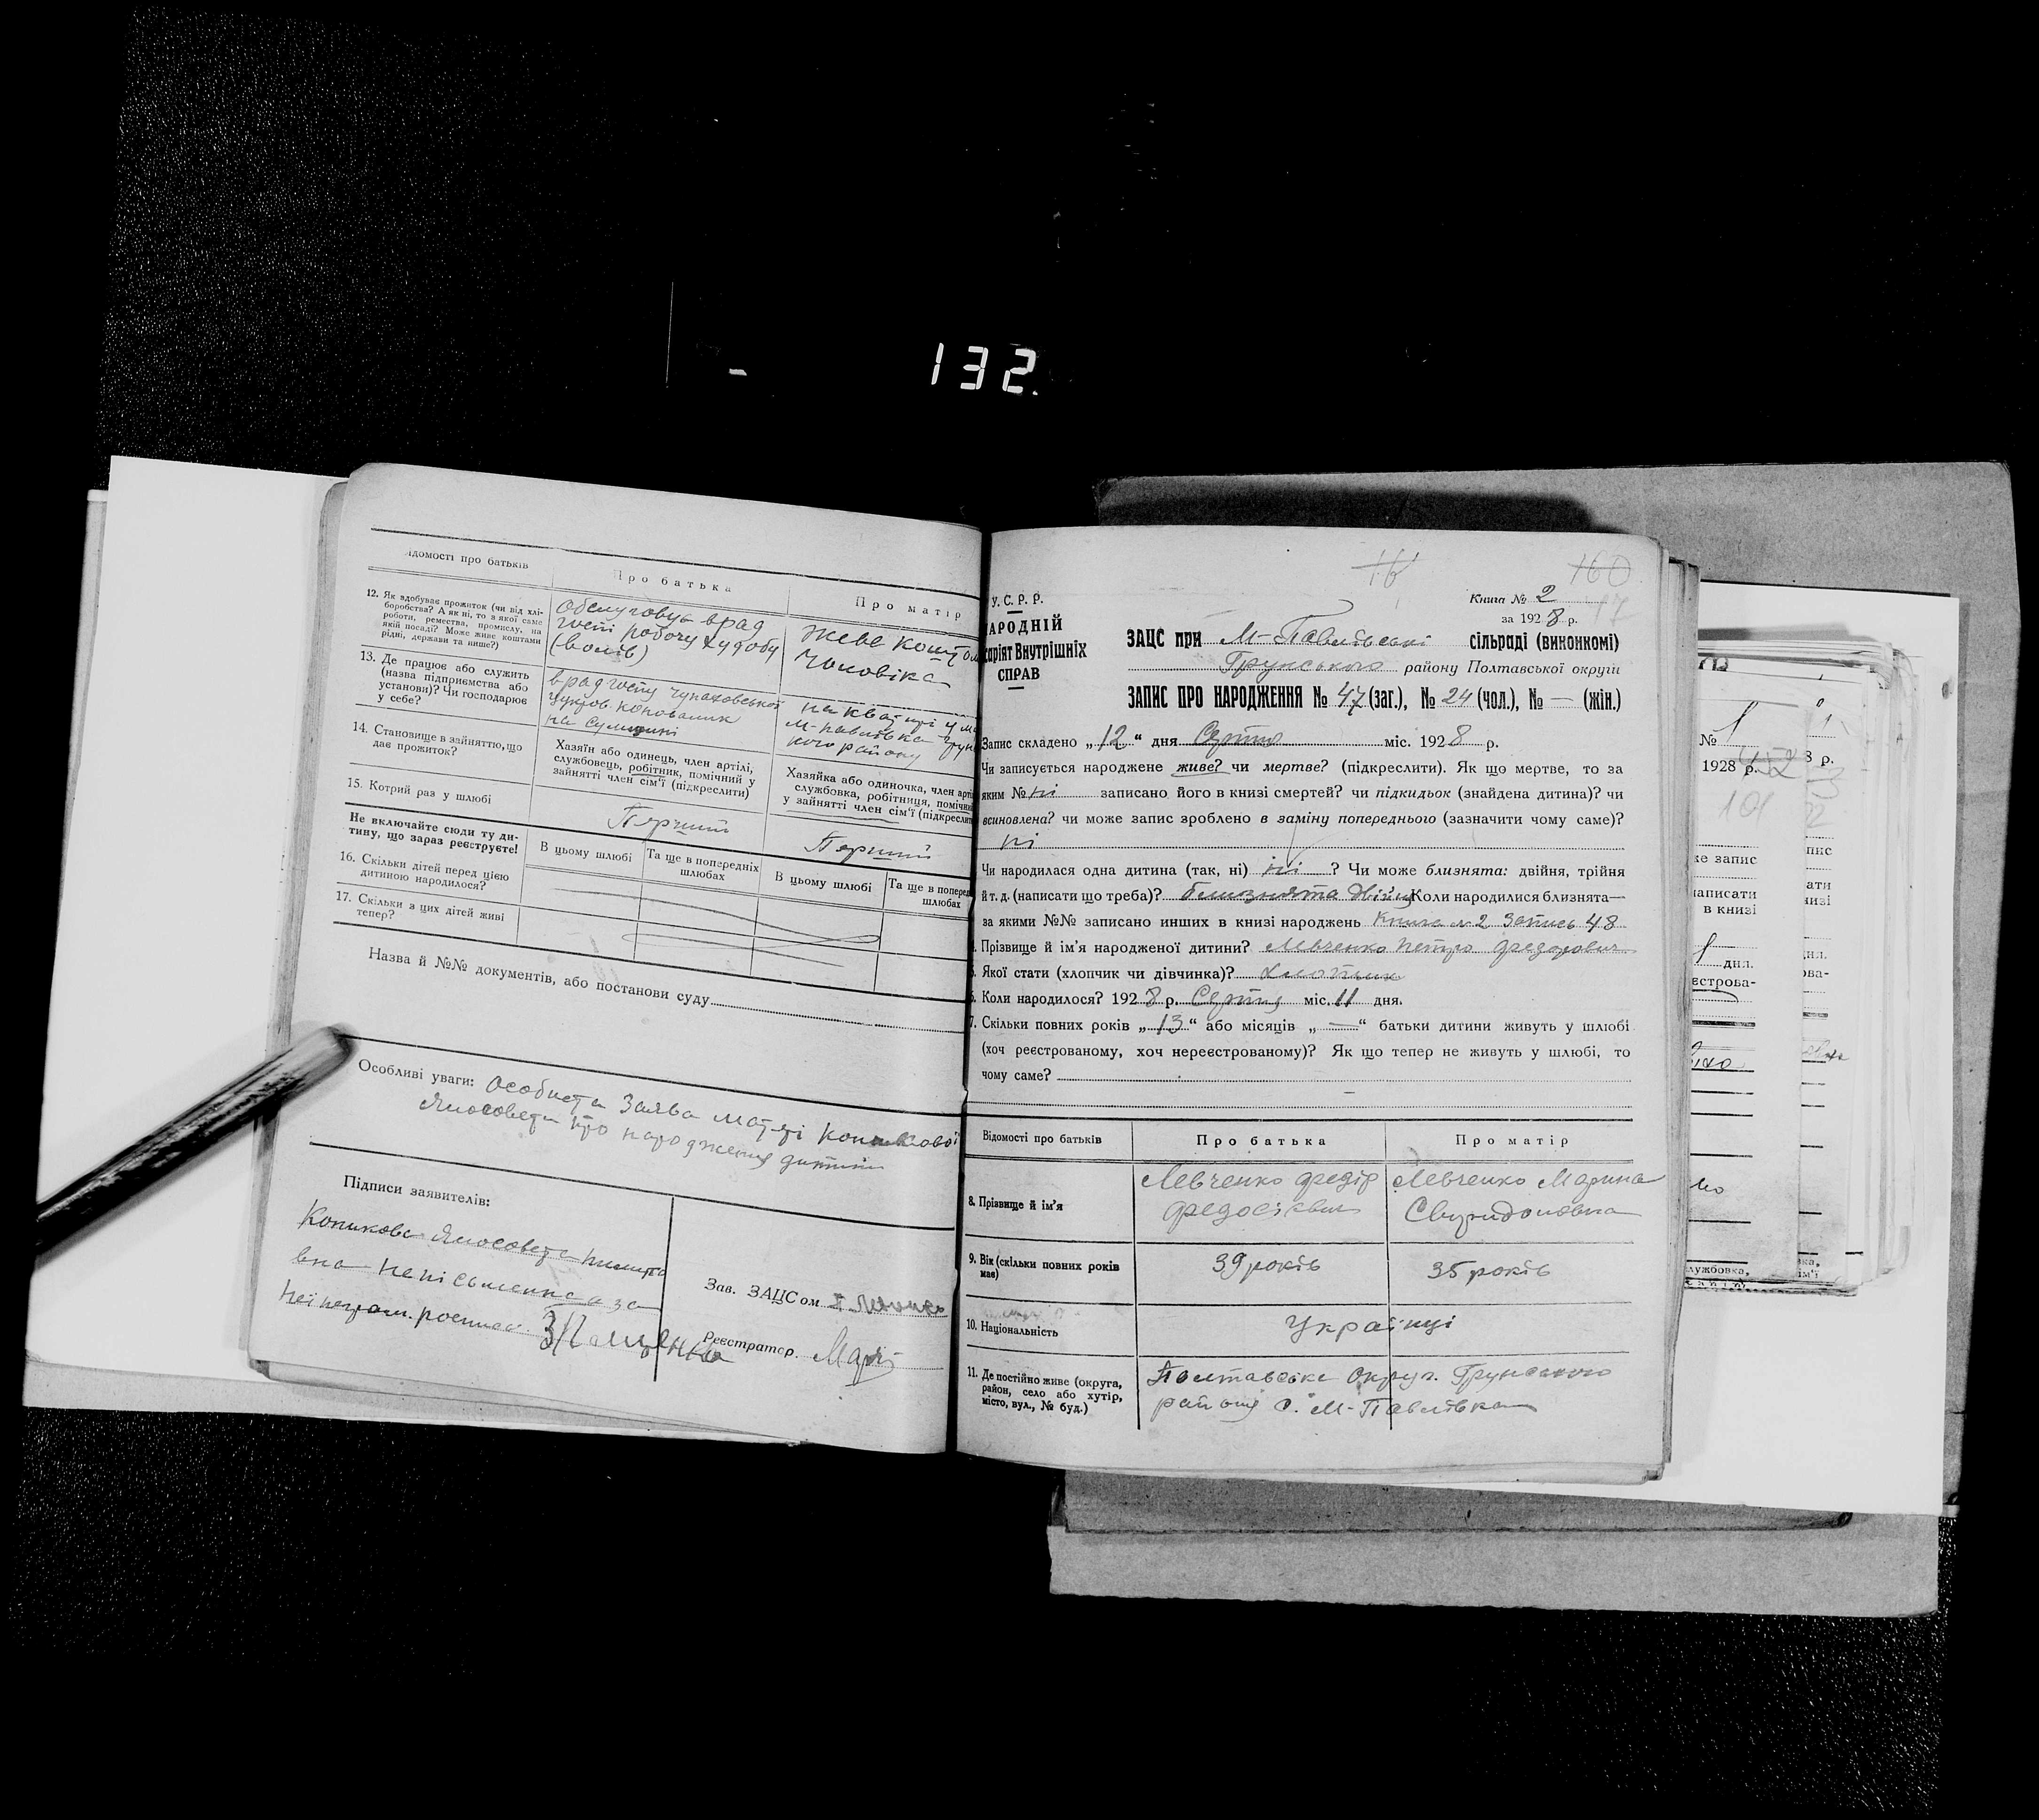 132.
Відомості про батьків
Про батька
Про матір
12. Як здобуває прожиток (чи від хлі-
боробства? А як ні, то з якої саме
роботи, ремества, промислу, на
якій посаді? Може живе коштами
рідні, держави та инше?)
обслуговує в рад
госпі робочу худобу
(волів)
живе коштом
чоловіка
13. Де працює або служить
(назва підприємства або
установи)? Чи господарює
у себе?
в радгоспу
на Сумщині
на квартирі у
М-Павлівка
кого району
14. Становище в зайняттю, що
дає прожиток?
Хазяїн або одинець, член артілі,
службовець, робітник, помічний у
зайнятті член сім'ї (підкреслити)
Хазяйка або одиночка, член арті
службовка, робітниця, помічни
у зайнятті член сім'ї (підкреслит
15. Котрий раз у шлюбі
Перший
Перший
Не включайте сюди ту ди-
тину, що зараз реєструєте!
В цьому шлюбі
Та ще в попередніх
шлюбах
В цьому шлюбі
Та ще в поперед
шлюбах
16. Скільки дітей перед цією
дитиною народилося?
17. Скільки з цих дітей живі
тепер?
Назва й №№ документів, або постанови суду
Особливі уваги: Особиста заява матері
про народження дитини
Підписи заявителів:
неписьменна а за
неї неграм. росписа
Зав. ЗАЦСом
Реєстратор.
16
160
17
У.С.Р.Р.
НАРОДНІЙ
Внутрішніх
СПРАВ
Книга № 2
за 1928 р.
ЗАЦС при М-Павлівські сільраді (виконкомі)
Грунського району Полтавської округи
ЗАПИС ПРО НАРОДЖЕННЯ № 47 (заг.), № 24 (чол.), № — (жін.)
Запис складено „12“ дня Серпня міс. 1928 р.
Чи записується народжене живе? чи мертве? (підкреслити). Як що мертве, то за
яким № ні записано його в книзі смертей? чи підкидьок (знайдена дитина)? чи
всиновлена? чи може запис зроблено в заміну попереднього (зазначити чому саме)?
ні
Чи народилася одна дитина (так, ні) ні ? Чи може близнята: двійня, трійня
й т. д. (написати що треба)? близнята двійня Коли народилися близнята—
за якими №№ записано инших в книзі народжень Книга № 2 запись 48
Прізвище й ім'я народженої дитини? Левченко Петро Федорович
Якої стати (хлопчик чи дівчинка)? хлопчик
Коли народилося? 1928 р. Серпня міс. 11 дня.
7. Скільки повних років „13“ або місяців „—“ батьки дитини живуть у шлюбі
(хоч реєстрованому, хоч нереєстрованому)? Як що тепер не живуть у шлюбі, то
чому саме?
Відомості про батьків
Про батька
Про матір
8. Прізвище й ім'я
Левченко Федір
Федосієвич
Левченко Марина
Свиридоновна
9. Вік (скільки повних років
має)
39 років
35 років
10. Національність
Українці
11. Де постійно живе (округа,
район, село або хутір,
місто, вул., № буд.)
Полтавське Округ. Грунського
району с. М-Павлівка
№
1928 р.
8 р.
101
же запис
написати
в книзі
дня.
естрова-
службовка,